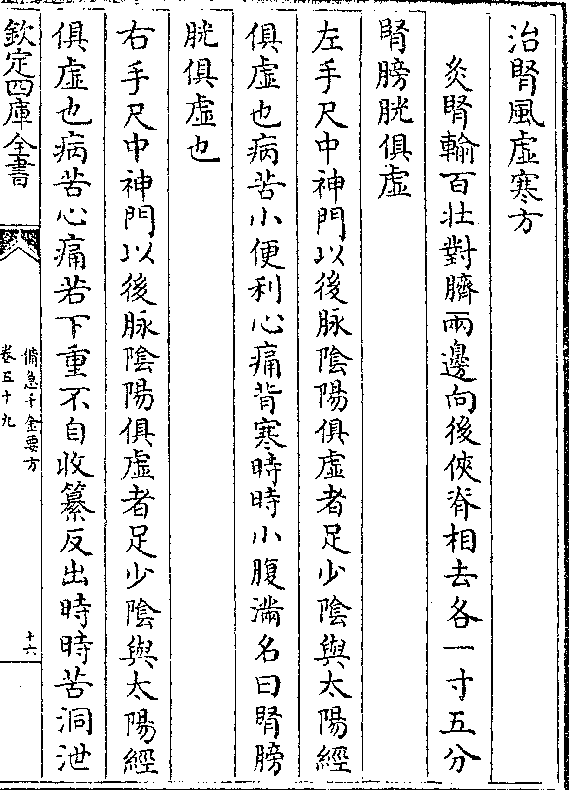 治腎風虛寒方
灸腎輸百壯對臍兩邊向後俠脊相去各一寸五分
腎膀胱俱虛
左手尺中神門以後脉陰陽俱虛者足少陰與太陽經
俱虛也病苦小便利心痛背寒時時小腹滿名曰腎膀
胱俱虛也
右手尺中神門以後脉陰陽俱虛者足少陰與太陽經
俱虛也病苦心痛若下重不自收篡反出時時苦洞泄
欽定四庫全書
備急千金要方
卷五十九
十六